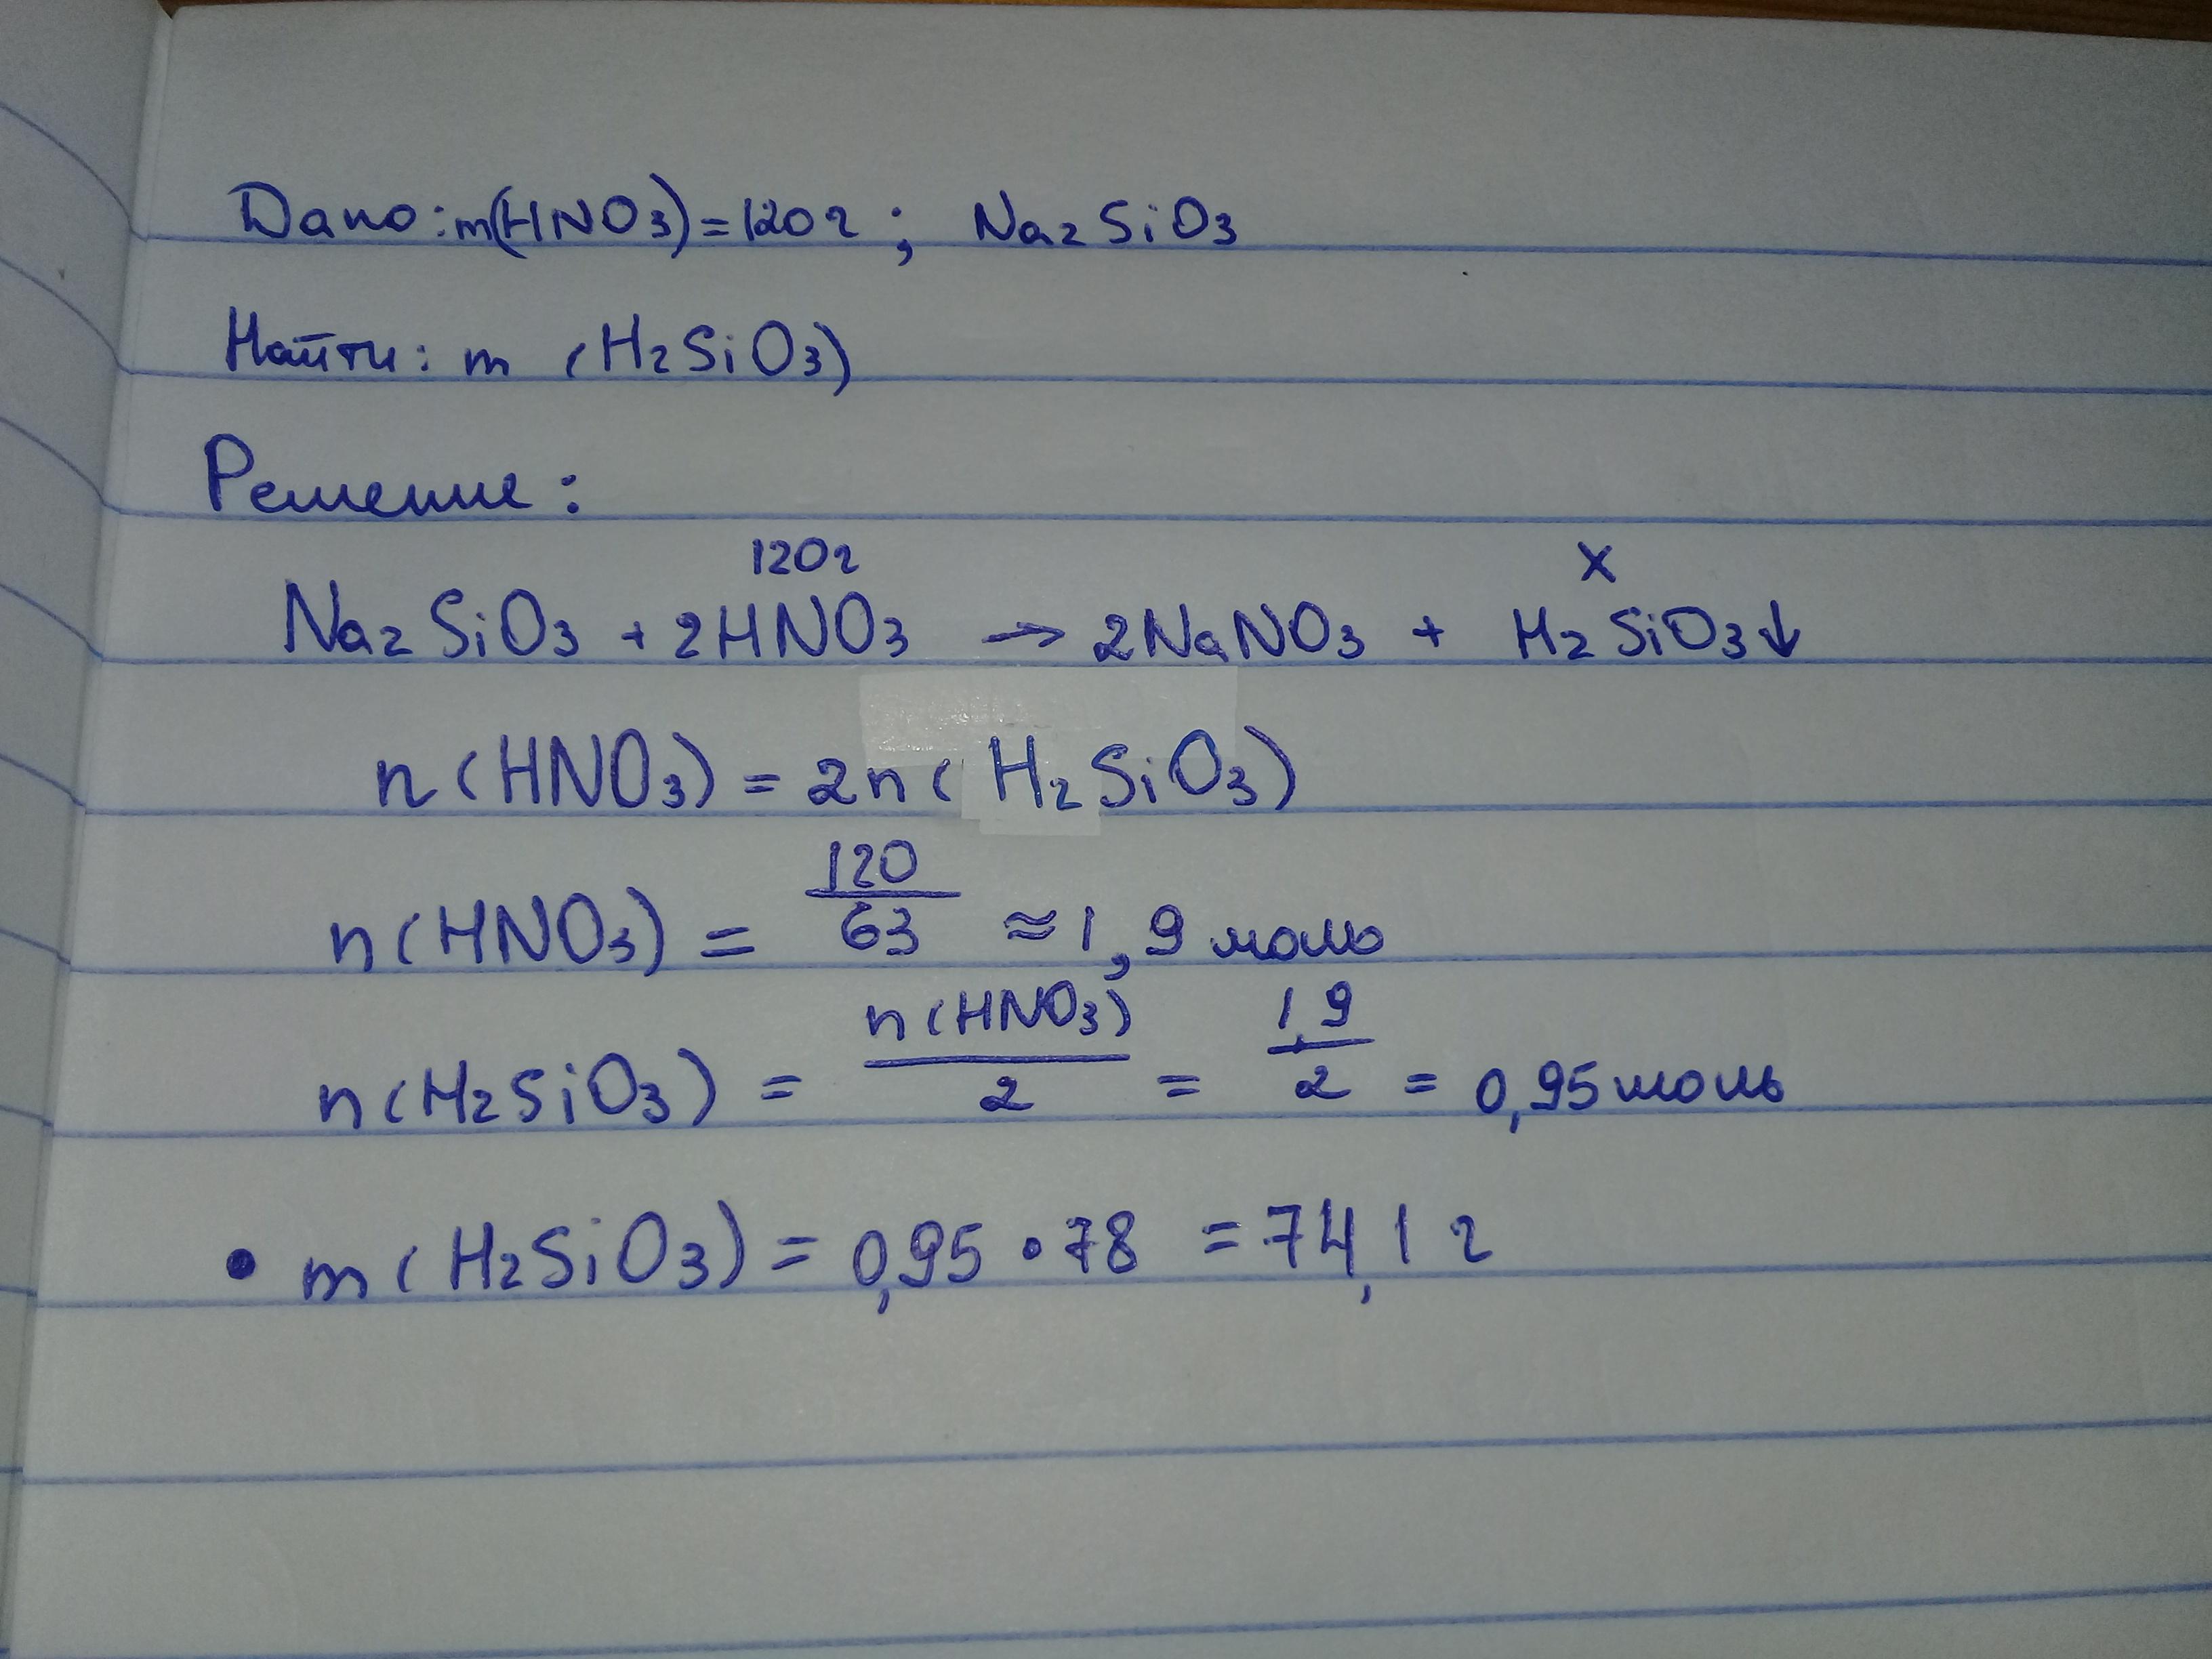 Дано: m(HNO3) = 120г ; Na2SiO3
Найти: m (H2SiO3)
Решение:
120г X
Na2SiO3 + 2HNO3 → 2NaNO3 + H2SiO3↓
n(HNO3) = 2n(H2SiO3)
n(HNO3) = 120/63 ≈ 1,9 моль
n(H2SiO3) = n(HNO3)/2 = 1,9/2 = 0,95 моль
• m(H2SiO3) = 0,95 • 78 = 74,1 г